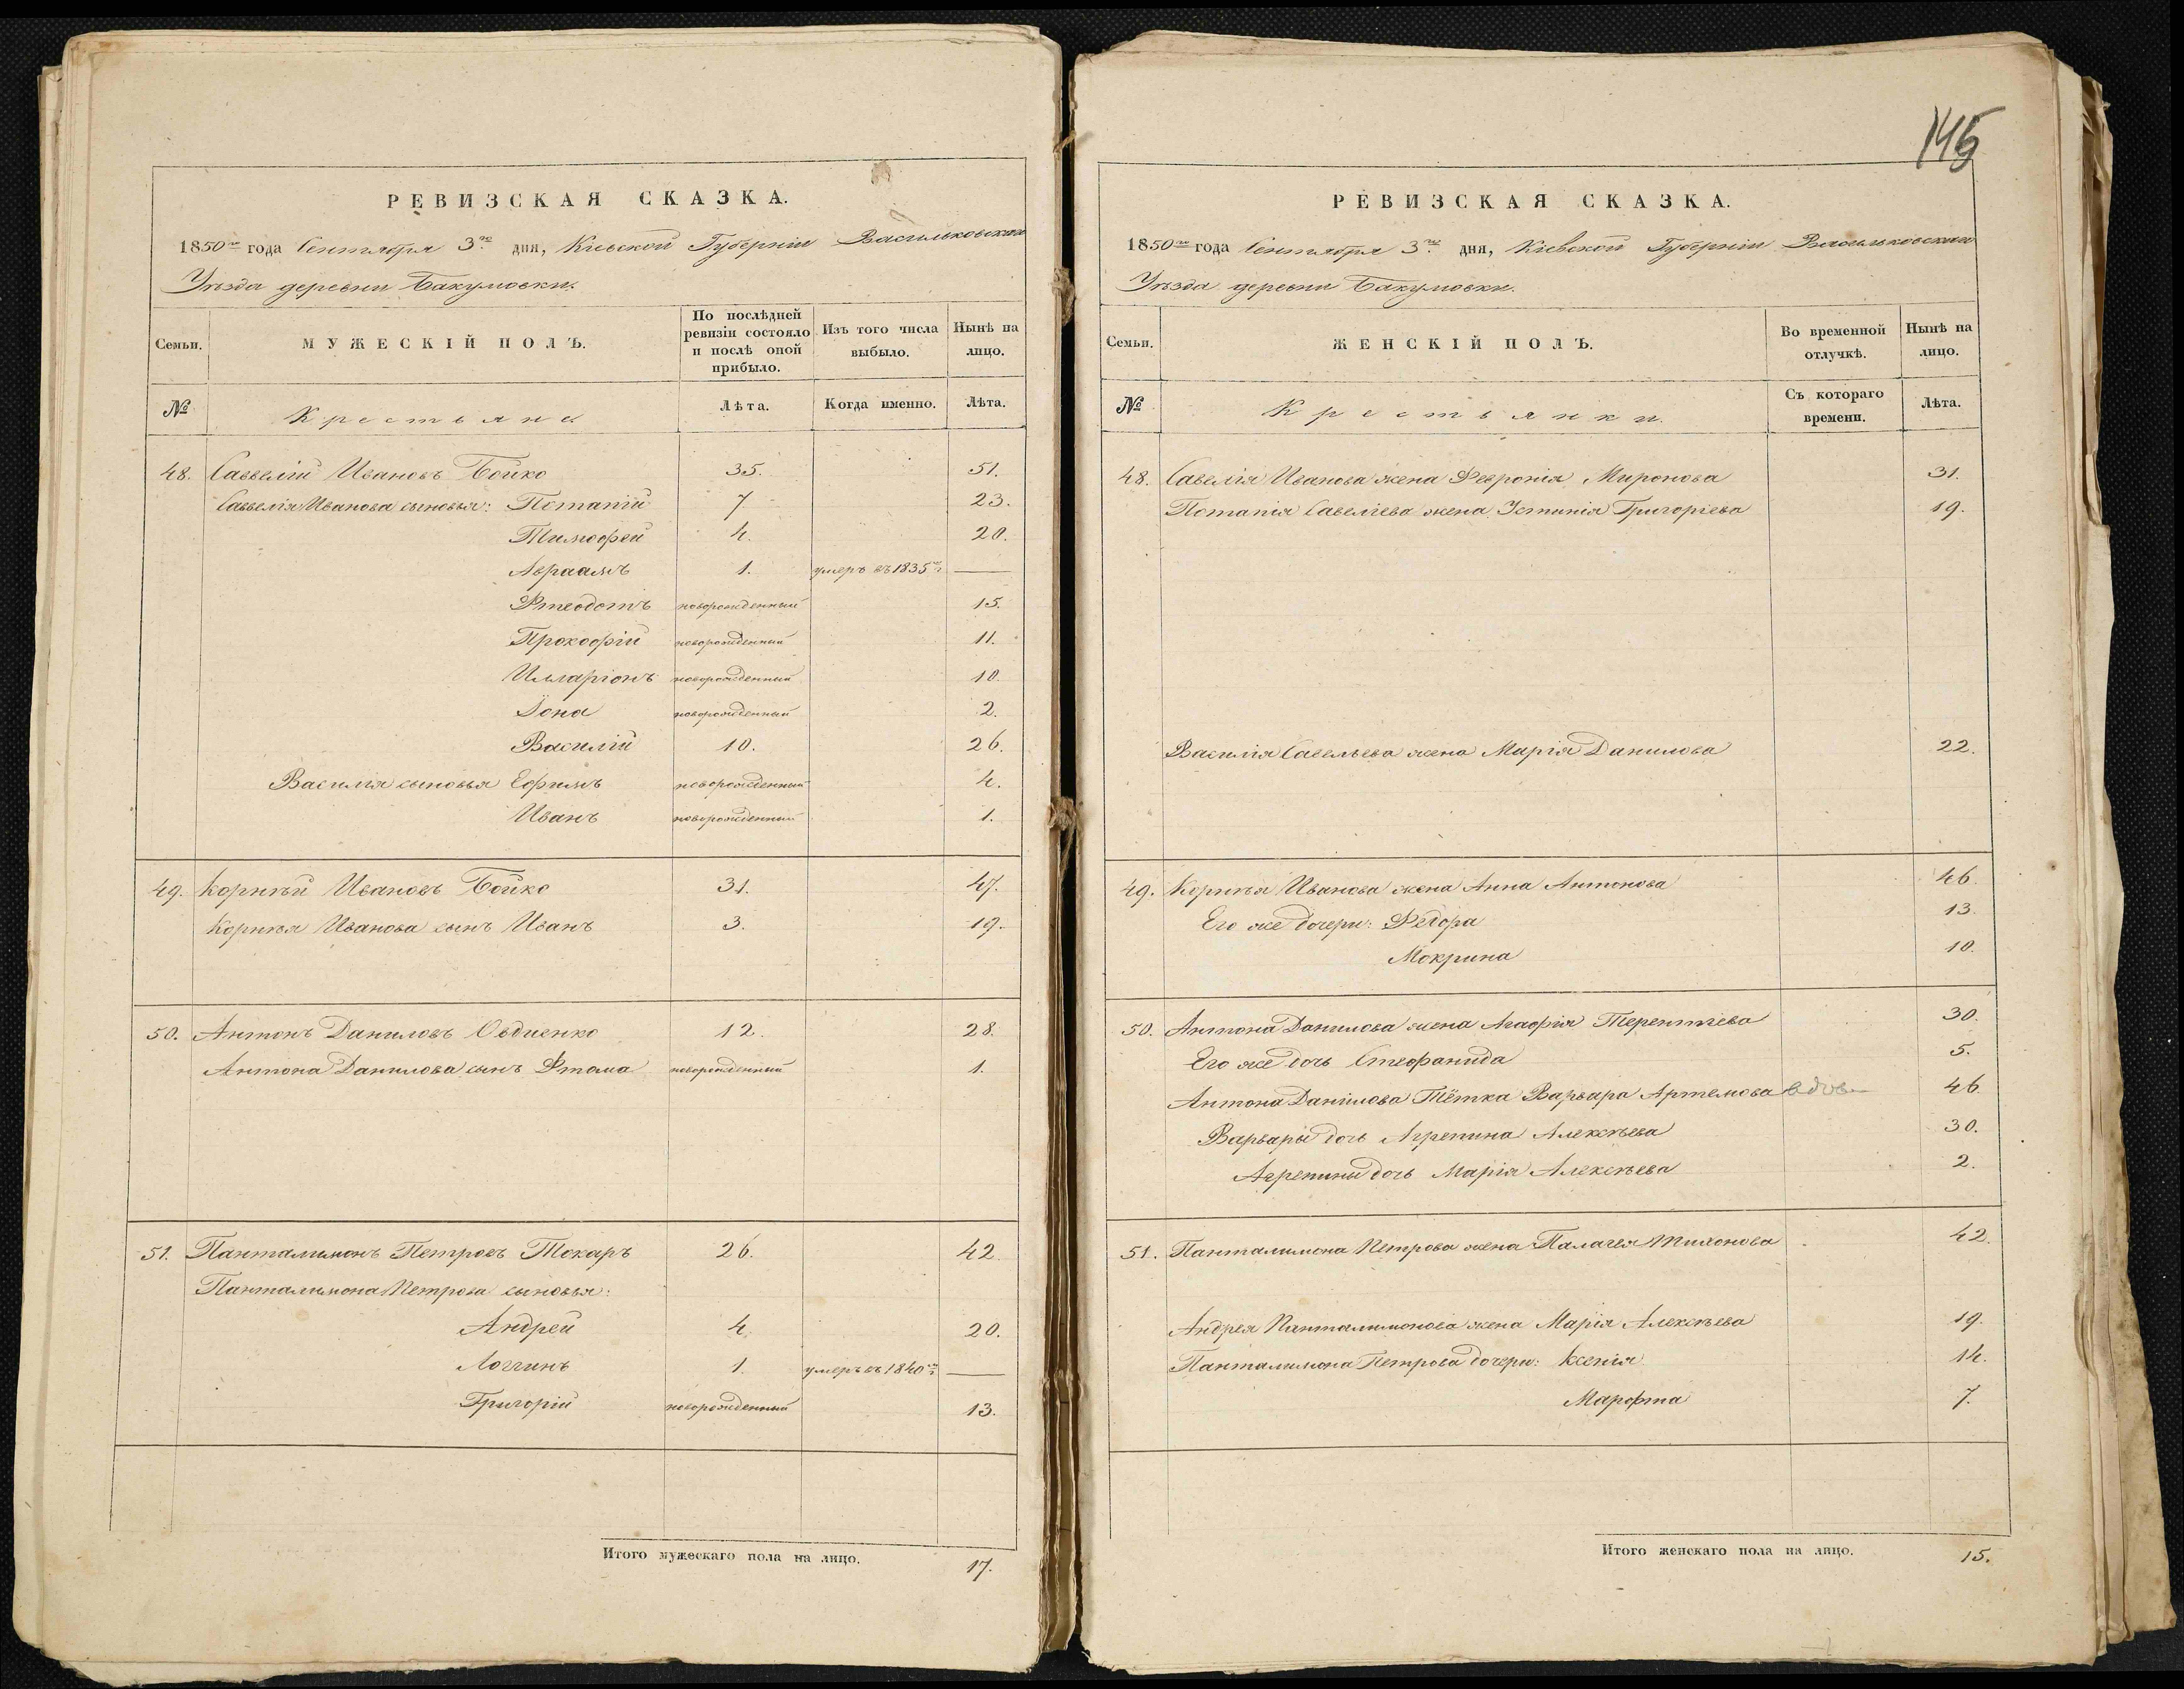 РЕВИЗСКАЯ СКАЗКА.
1850го года Сентября 3го дня, Кіевской Губерніи Васильковскаго
Уѣзда деревни Бакумовки.
Семьи. МУЖЕСКІЙ ПОЛЪ. По послѣдней ревизіи состояло и послѣ оной прибыло. Изъ того числа выбыло. Нынѣ на лицо.
№ Крестьяне Лѣта. Когда именно. Лѣта.
48. Саввелій Ивановъ Бойко 35. 51.
Саввелія Иванова сыновья: Потапій 7. 23.
Тимофей 4. 20.
Авраамъ 1. умеръ въ 1835го —
Фтеодотъ новорожденный 15.
Прокофій новорожденный 11.
Илларіонъ новорожденный 10.
Іона новорожденный 2.
Василій 10. 26.
Василія сыновья Ефимъ новорожденный 4.
Иванъ новорожденный 1.
49. Корнѣй Ивановъ Бойко 31. 47.
Корнѣя Иванова сынъ Иванъ 3. 19.
50. Антонъ Даниловъ Овдиенко 12. 28.
Антона Данилова сынъ Фтома новорожденный 1.
51. Панталимонъ Петровъ Токаръ 26. 42.
Панталимона Петрова сыновья:
Андрей 4. 20.
Логгинъ 1. умеръ въ 1840го —
Григорій новорожденный 13.
Итого мужескаго пола на лицо. 17.
145
РЕВИЗСКАЯ СКАЗКА.
1850го года Сентября 3го дня, Кіевской Губерніи Васильковскаго
Уѣзда деревни Бакумовки.
Семьи. ЖЕНСКІЙ ПОЛЪ. Во временной отлучкѣ. Нынѣ на лицо.
№ Крестьянки. Съ котораго времени. Лѣта.
48. Савелія Иванова жена Февронія Миронова 31.
Потапія Савеліева жена Устинія Григоріева 19.
Василія Савельева жена Марія Данилова 22.
49. Корнѣя Иванова жена Анна Антонова 46.
Его же дочери: Федора 13.
Мокрина 10.
50. Антона Данилова жена Агафія Терентіева 30.
Его же дочь Стефанида 5.
Антона Данилова Тётка Варвара Артемова вдова 46.
Варвары дочь Агрепина Алексѣева 30.
Агрепины дочь Марія Алексѣева 2.
51. Панталимона Петрова жена Палагея Тихонова 42.
Андрея Панталимонова жена Марія Алексѣева 19.
Панталимона Петрова дочери: Ксенія 14.
Марфта 7.
Итого женскаго пола на лицо. 15.